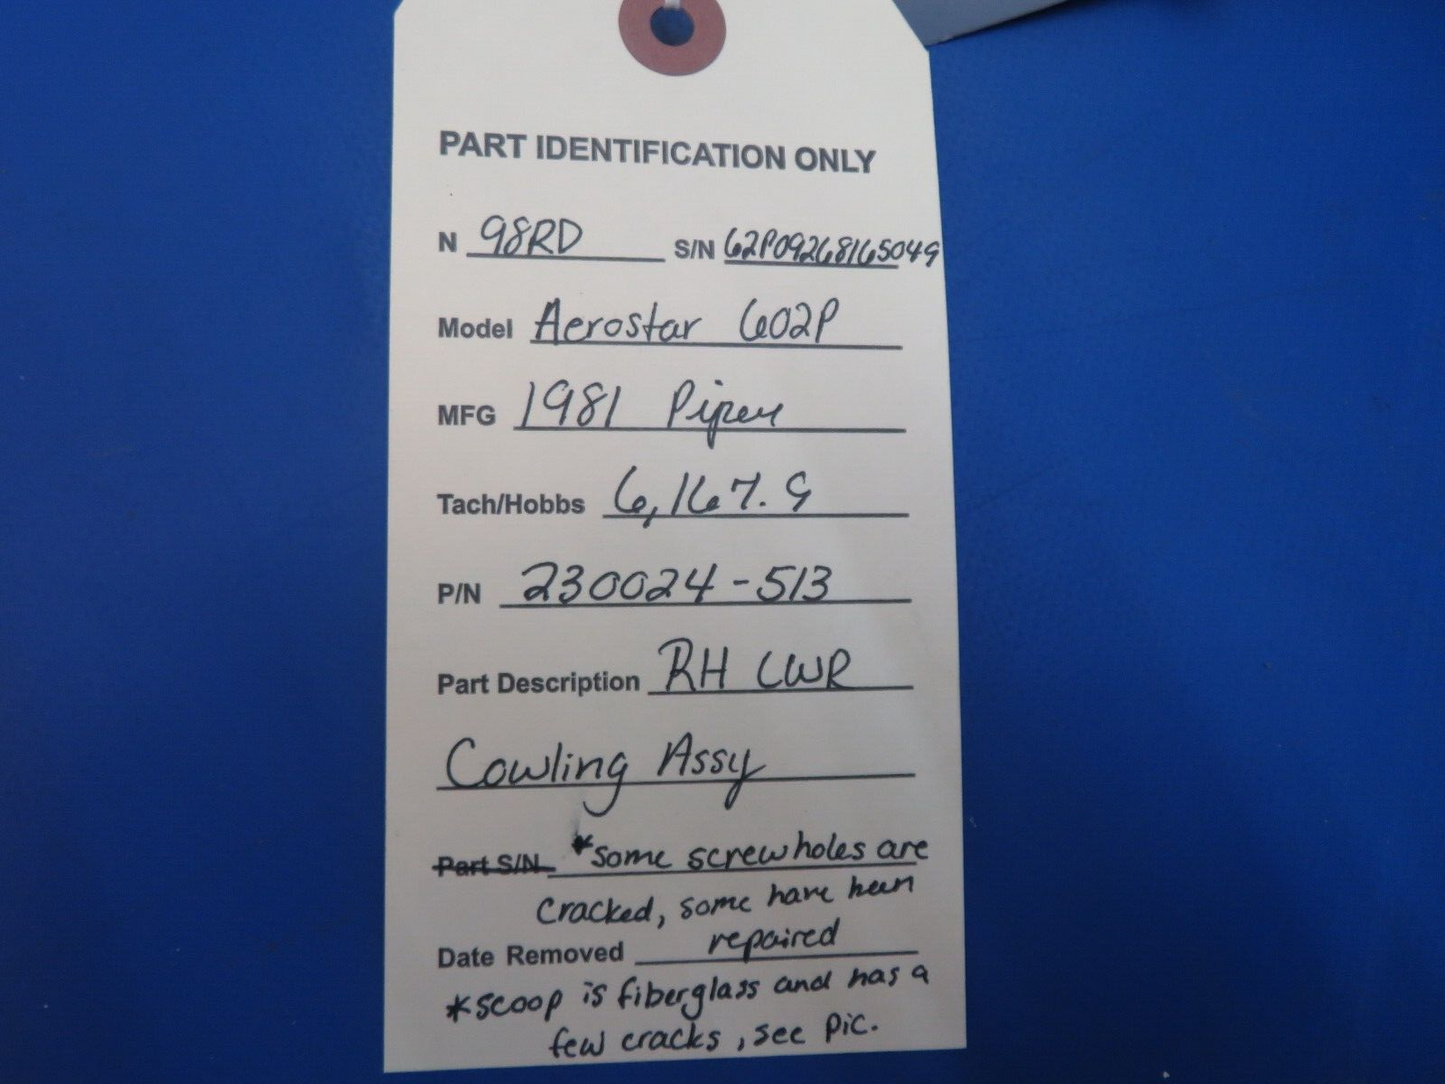 PART IDENTIFICATION ONLY
N 98RD S/N 62P09268165049
Model Aerostar 602P
MFG 1981 Piper
Tach/Hobbs 6,167.9
P/N 230024-513
Part Description RH LWR
Cowling Assy
Part S/N *some screwholes are
cracked, some have been
Date Removed repaired
*scoop is fiberglass and has a
few cracks, see pic.